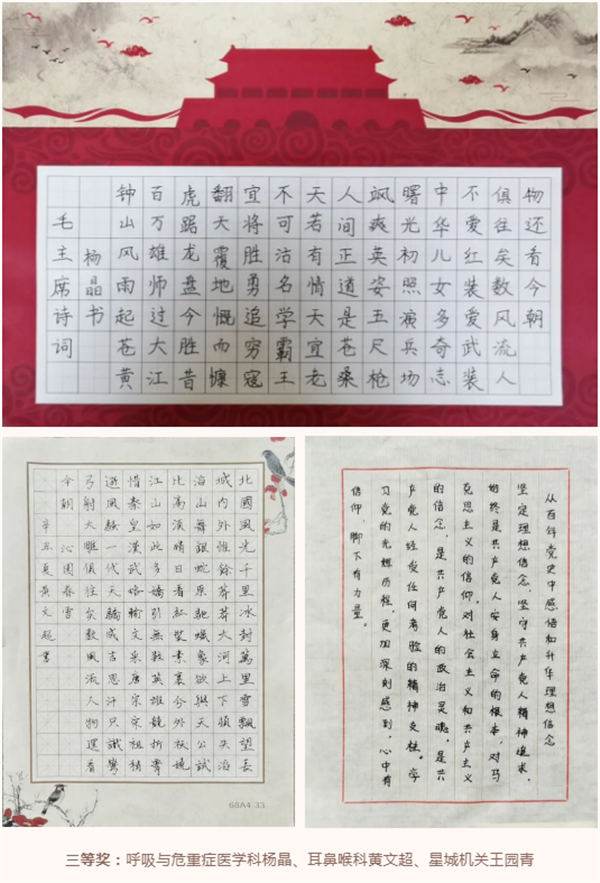 毛主席诗词
杨晶书
钟山风雨起苍黄
百万雄师过大江
虎踞龙盘今胜昔
翻天覆地慨而慷
宜将胜勇追穷寇
不可沽名学霸王
天若有情天宜老
人间正道是苍桑
飒爽英姿五尺枪
曙光初照演兵场
中华儿女多奇志
不爱红装爱武装
俱往矣数风流人
物还看今朝
北國風光千里冰封萬里雪飄望長
城内外惟餘莽莽大河上下頓失滔
滔山舞銀蛇原馳蠟象欲與天公試
比高須晴日看紅裝素裹分外妖嬈
江山如此多嬌引無數英雄競折腰
惜秦皇漢武略輸文采唐宗宋祖稍
遜風騷一代天驕成吉思汗只識彎
弓射大雕俱往矣數風流人物還看
今朝 沁園春雪
辛丑夏黄文超書
68A4-33
从百年党史中感悟和升华理想信念
坚定理想信念，坚守共产党人精神追求，
始终是共产党人安身立命的根本，对马
克思主义的信仰，对社会主义和共产主义
的信念，是共产党人的政治灵魂，是共
产党人经受任何考验的精神支柱。学
习党的光辉历程，更加深刻感到，心中有
信仰，脚下有力量。
三等奖：呼吸与危重症医学科杨晶、耳鼻喉科黄文超、星城机关王园青